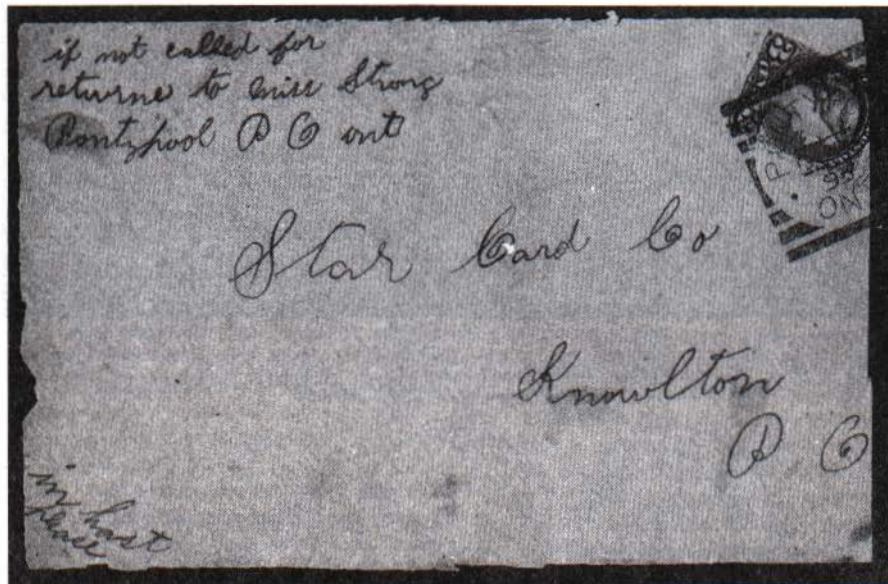 if not called for
returne to miss Strong
Pontypool P O ont
Star Card Co
Knowlton
P O
in hast
please